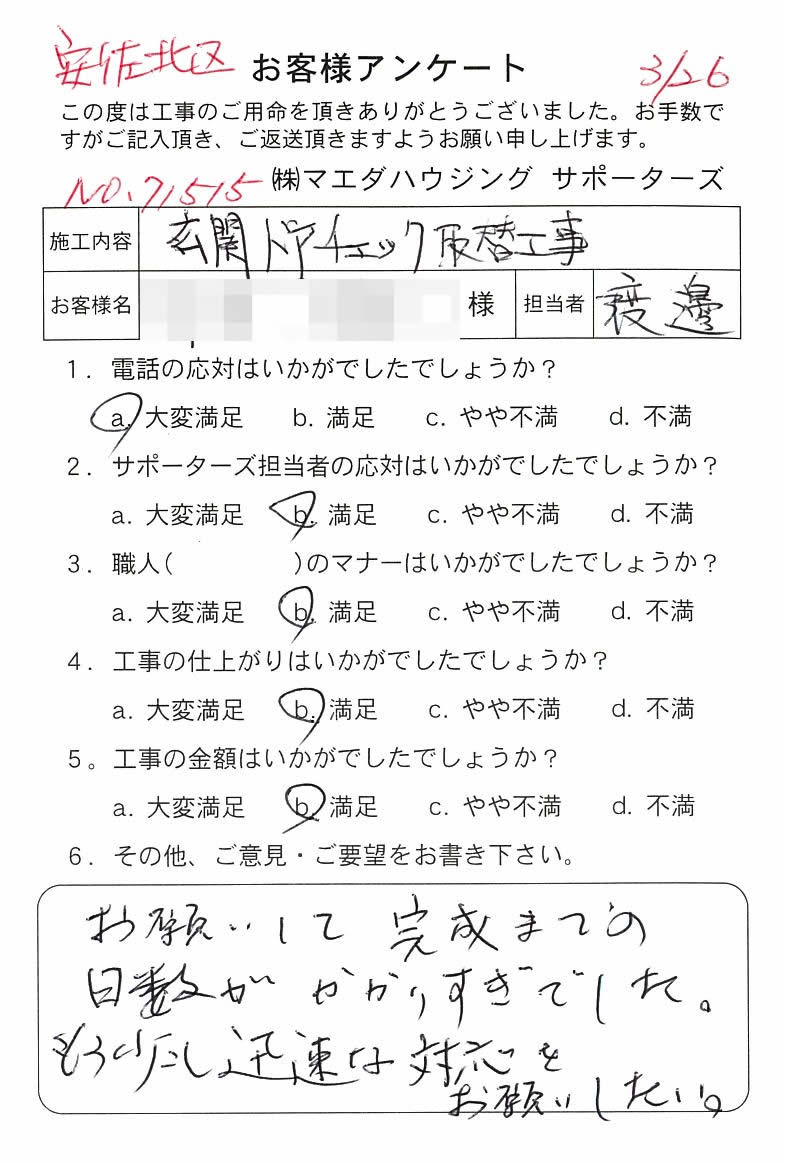 安佐北区 お客様アンケート 3/26
この度は工事のご用命を頂きありがとうございました。お手数で
すがご記入頂き、ご返送頂きますようお願い申し上げます。
NO.71515 ㈱マエダハウジング サポーターズ
施工内容 玄関ドアチェック取替工事
お客様名 様 担当者 渡邊
1. 電話の応対はいかがでしたでしょうか？
a. 大変満足 b. 満足 c. やや不満 d. 不満
2. サポーターズ担当者の応対はいかがでしたでしょうか？
a. 大変満足 b. 満足 c. やや不満 d. 不満
3. 職人( )のマナーはいかがでしたでしょうか？
a. 大変満足 b. 満足 c. やや不満 d. 不満
4. 工事の仕上がりはいかがでしたでしょうか？
a. 大変満足 b. 満足 c. やや不満 d. 不満
5。工事の金額はいかがでしたでしょうか？
a. 大変満足 b. 満足 c. やや不満 d. 不満
6. その他、ご意見・ご要望をお書き下さい。
お願いして 完成までの
日数が かかりすぎでした。
もう少し迅速な対応を
お願いしたい。